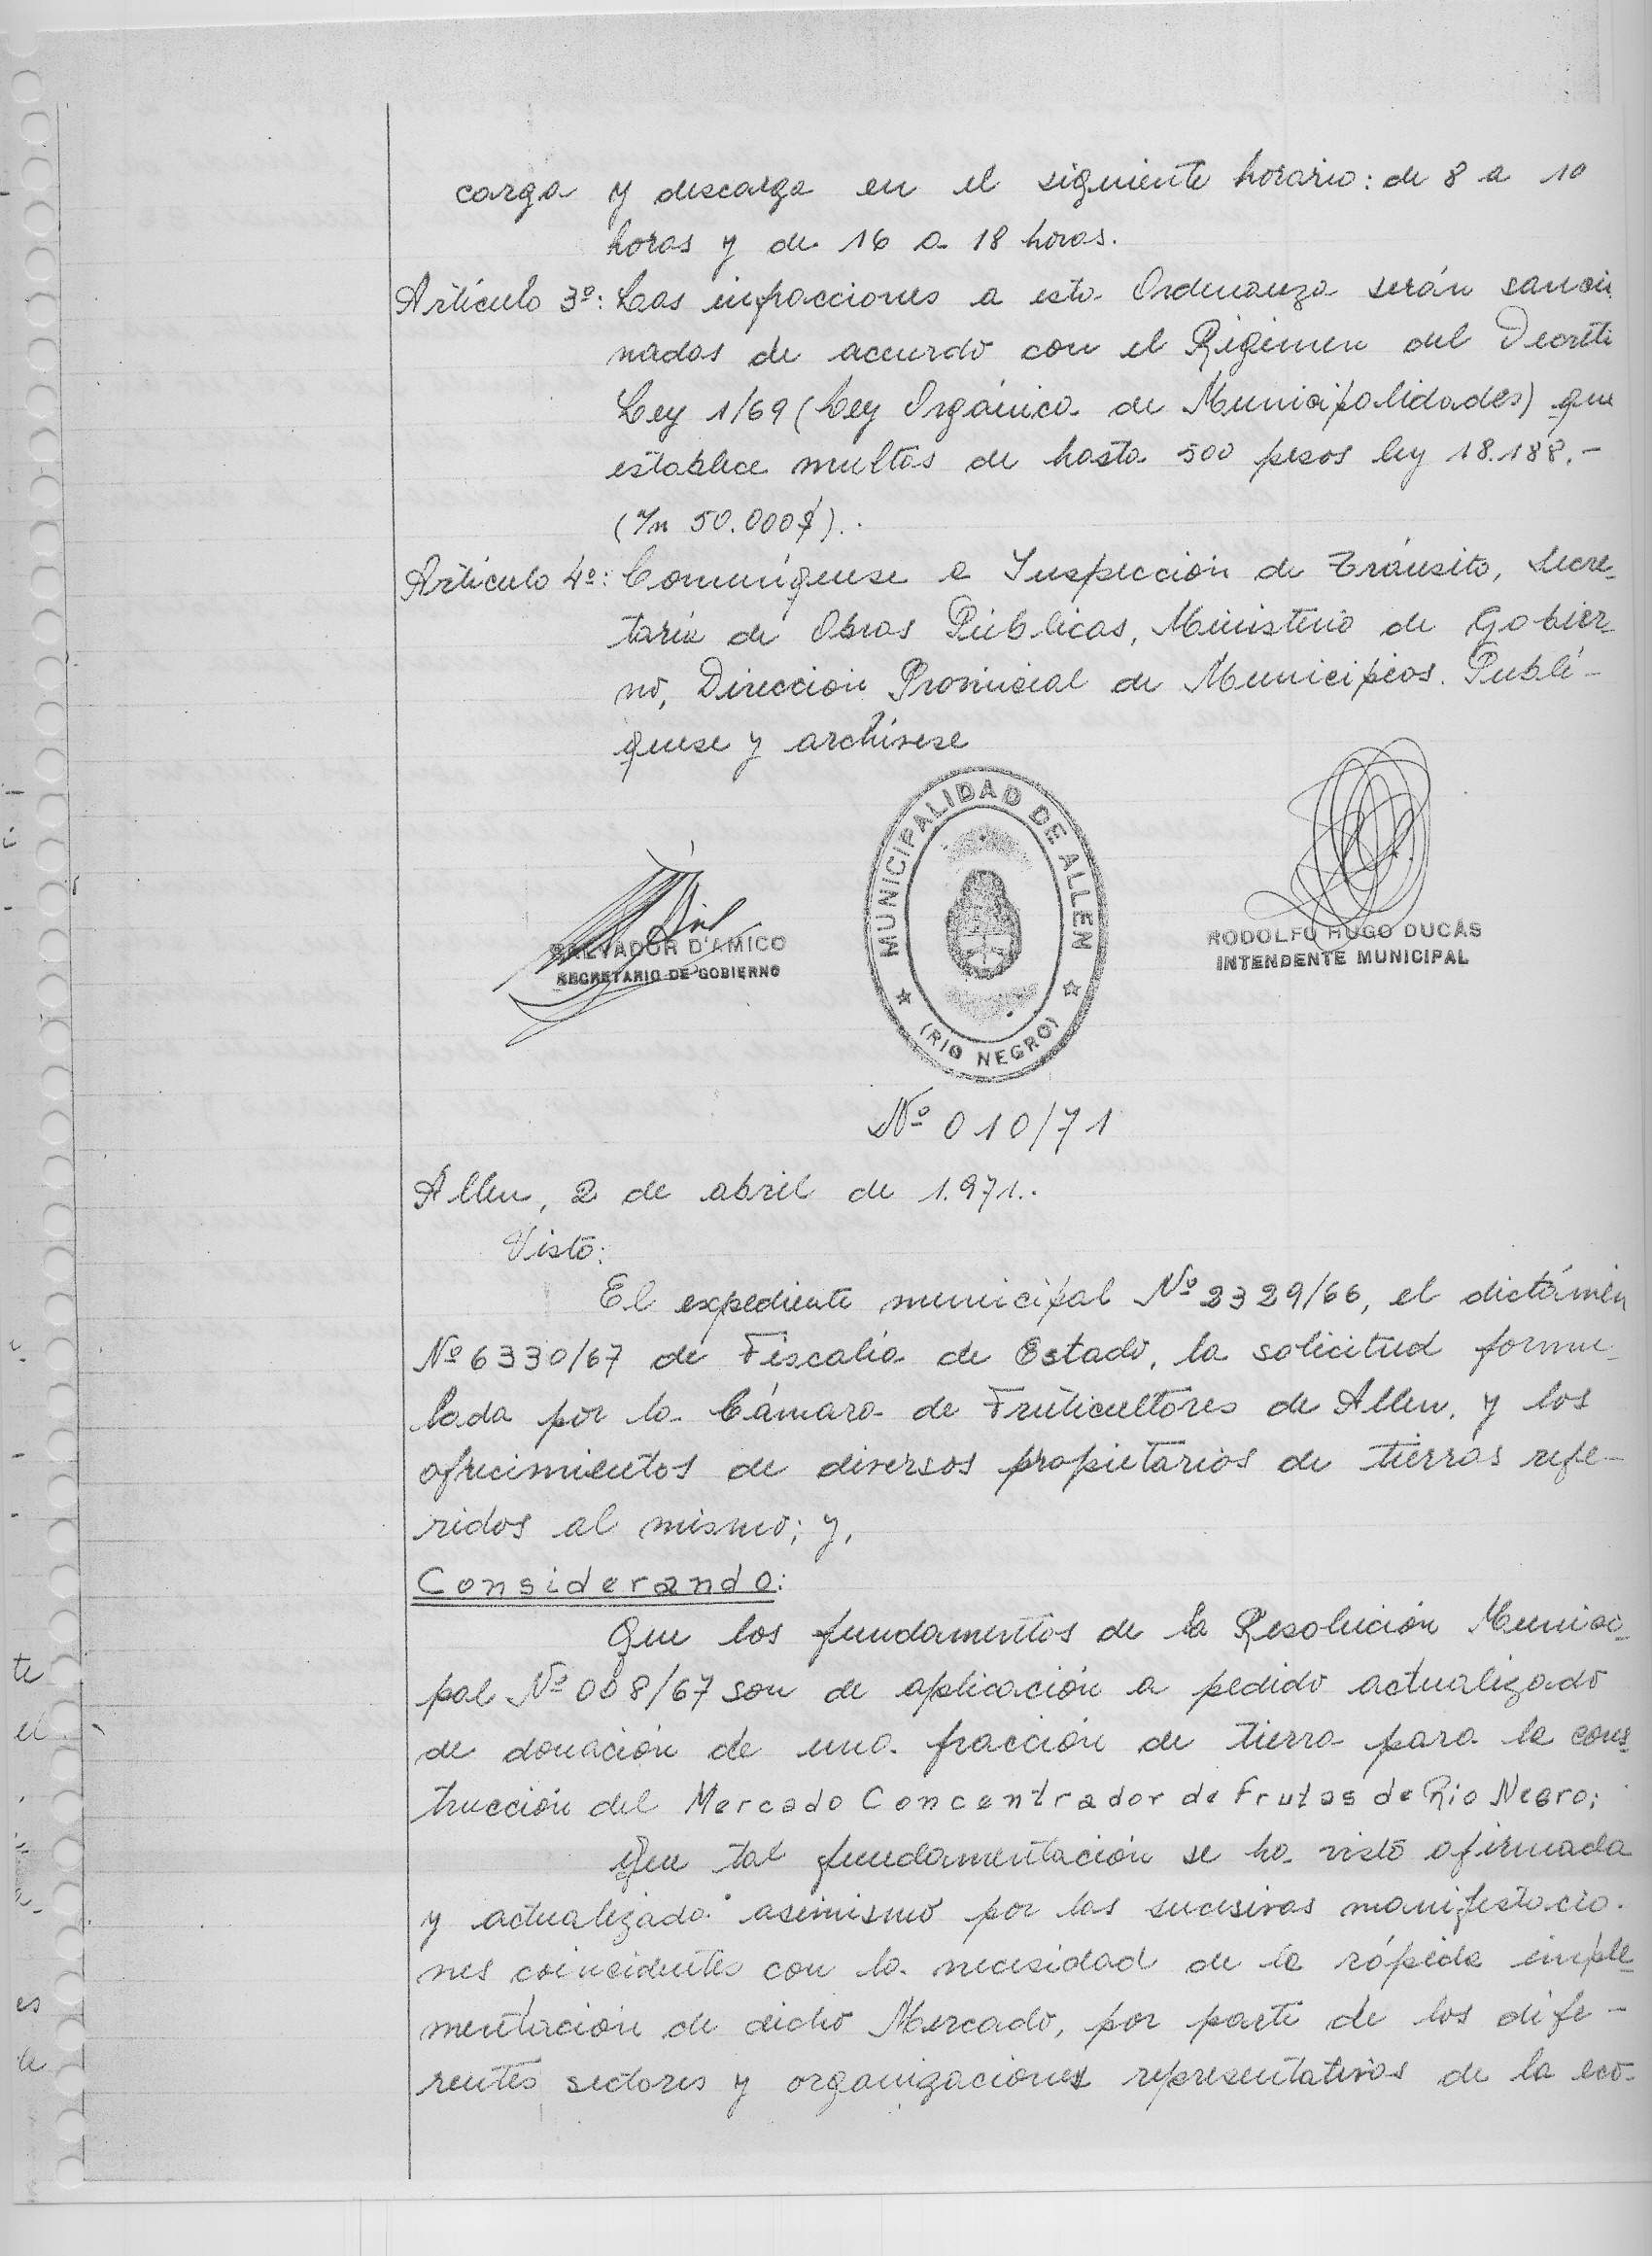 carga y descarga en el siguiente horario: de 8 a 10
horas y de 16 a 18 horas.
Artículo 3º: Las infracciones a esta Ordenanza serán sancio
nadas de acuerdo con el Régimen del Decreto
Ley 1/69 (Ley Orgánica de Municipalidades) que
establece multas de hasta 500 pesos ley 18.188.-
(m/n 50.000$).
Artículo 4º: Comuníquese a Inspección de Tránsito, Secre-
taría de Obras Públicas, Ministerio de Gobier-
no, Dirección Provincial de Municipios. Publí-
quese y archívese
MUNICIPALIDAD DE ALLEN
(RIO NEGRO)
SALVADOR D'AMICO
SECRETARIO DE GOBIERNO
RODOLFO HUGO DUCÁS
INTENDENTE MUNICIPAL
Nº 010/71
Allen, 2 de abril de 1.971.
Visto:
El expediente municipal Nº 2329/66, el dictámen
Nº 6330/67 de Fiscalía de Estado, la solicitud formu-
lada por la Cámara de Fruticultores de Allen, y los
ofrecimientos de diversos propietarios de tierras refe-
ridos al mismo; y,
Considerando:
Que los fundamentos de la Resolución Munici-
pal Nº 008/67 son de aplicación a pedido actualizado
de donación de una fracción de tierra para la cons-
trucción del Mercado Concentrador de Frutas de Rio Negro;
Que tal fundamentación se ha visto afirmada
y actualizada asimismo por las sucesivas manifestacio-
nes coincidentes con la necesidad de la rápida imple-
mentación de dicho Mercado, por parte de los dife-
rentes sectores y organizaciones representativas de la eco-
te
el
es
le